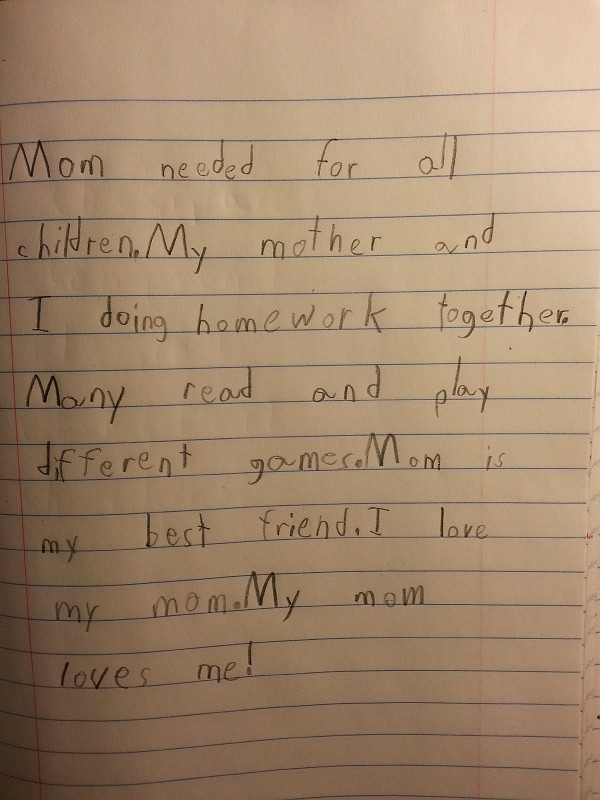 Mom needed for all
children. My mother and
I doing homework together.
Many read and play
different games. Mom is
my best friend. I love
my mom. My mom
loves me!